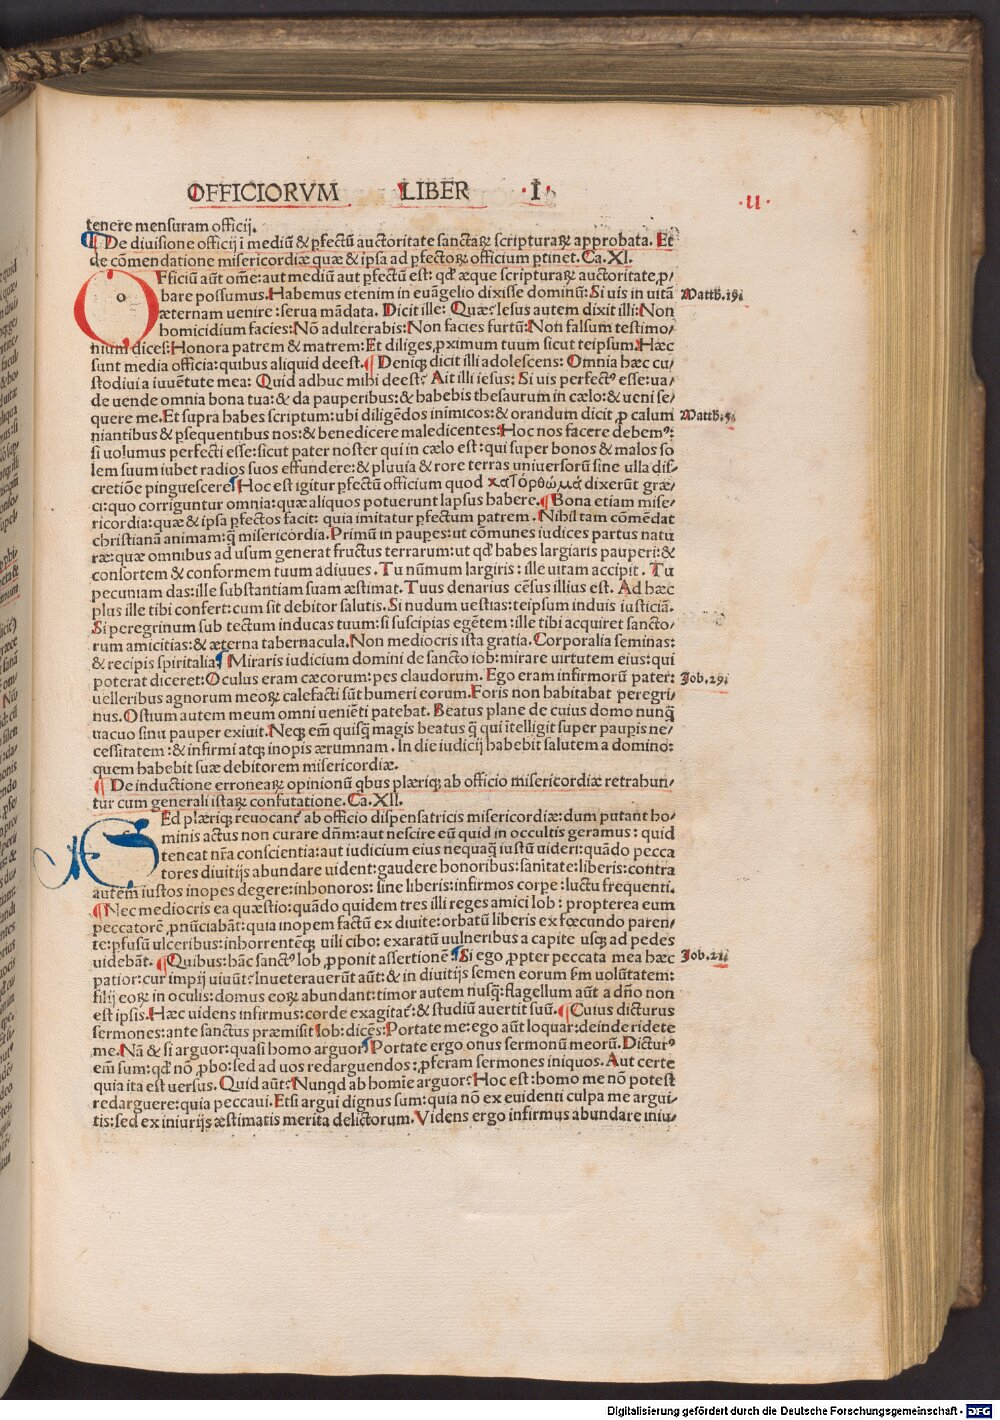 OFFICIORVM LIBER ·I·
·II·
tenere mensuram officij.
¶ De diuisione officij ī mediū & ꝑfectū auctoritate sanctaꝝ scripturaꝝ approbata. Et
de cōmendatione misericordiæ quæ & ipsa ad ꝑfectoꝝ officium ꝑtinet. Ca. XI.
OFficiū aūt om̄e: aut mediū aut ꝑfectū est: qd̓ æque scripturaꝝ auctoritate ꝓ/
bare possumus. Habemus etenim in euāgelio dixisse dominū: Si uis in uitā
æternam uenire: serua mādata. Dicit ille: Quæ? Iesus autem dixit illi: Non
homicidium facies: Nō adulterabis: Non facies furtū: Non falsum testimo/
nium dices: Honora patrem & matrem: Et diliges ꝓximum tuum sicut teipsum. Hæc
sunt media officia: quibus aliquid deest. ¶ Deniqꝫ dicit illi adolescens: Omnia hæc cu/
stodiui a iuuētute mea: Quid adhuc mihi deest? Ait illi iesus: Si uis perfectꝰ esse: ua/
de uende omnia bona tua: & da pauperibus: & habebis thesaurum in cælo: & ueni se/
quere me. Et supra habes scriptum: ubi diligēdos inimicos: & orandum dicit ꝓ calum
niantibus & ꝑsequentibus nos: & benedicere maledicentes: Hoc nos facere debemꝰ:
si uolumus perfecti esse: sicut pater noster qui in cælo est: qui super bonos & malos so
lem suum iubet radios suos effundere: & pluuia & rore terras uniuersorū sine ulla dis/
cretiōe pinguescere ¶ Hoc est igitur ꝑfectū officium quod κατόρθωμα dixerūt græ/
ci: quo corriguntur omnia: quæ aliquos potuerunt lapsus habere. ¶ Bona etiam mise/
ricordia: quæ & ipsa ꝑfectos facit: quia imitatur ꝑfectum patrem. Nihil tam cōmēdat
christianā animam: q̄ misericordia. Primū in pauꝑes: ut cōmunes iudices partus natu
ræ: quæ omnibus ad usum generat fructus terrarum: ut qd̓ habes largiaris pauperi: &
consortem & conformem tuum adiuues. Tu nūmum largiris: ille uitam accipit. Tu
pecuniam das: ille substantiam suam æstimat. Tuus denarius cēsus illius est. Ad hæc
plus ille tibi confert: cum sit debitor salutis. Si nudum uestias: teipsum induis iusticiā.
Si peregrinum sub tectum inducas tuum: si suscipias egētem: ille tibi acquiret sancto/
rum amicitias: & æterna tabernacula. Non mediocris ista gratia. Corporalia seminas:
& recipis spiritalia ¶ Miraris iudicium domini de sancto iob: mirare uirtutem eius: qui
poterat diceret: Oculus eram cæcorum: pes claudorum. Ego eram infirmorū pater:
uelleribus agnorum meoꝝ calefacti sūt humeri eorum. Foris non habitabat peregri/
nus. Ostium autem meum omni ueniēti patebat. Beatus plane de cuius domo nunq̄
uacuo sinu pauper exiuit. Neqꝫ em̄ quisq̄ magis beatus q̄ qui ītelligit super paupis ne/
cessitatem: & infirmi atqꝫ inopis ærumnam. In die iudicij habebit salutem a domino:
quem habebit suæ debitorem misericordiæ.
¶ De inductione erroneaꝝ opinionū qbus plæriqꝫ ab officio misericordiæ retrahun/
tur cum generali istaꝝ confutatione. Ca. XII.
SEd plæriqꝫ reuocant̄ ab officio dispensatricis misericordiæ: dum putant ho/
minis actus non curare dn̄m: aut nescire eū quid in occultis geramus: quid
teneat nr̄a conscientia: aut iudicium eius nequaq̄ iustū uideri: quādo pecca
tores diuitijs abundare uident: gaudere honoribus: sanitate: liberis: contra
autem iustos inopes degere: inhonoros: sine liberis: infirmos corpe: luctu frequenti.
¶ Nec mediocris ea quæstio: quādo quidem tres illi reges amici Iob: propterea eum
peccatorē ꝓnūciabāt: quia inopem factū ex diuite: orbatū liberis ex fœcundo paren/
te: ꝑfusū ulceribus: inhorrentēqꝫ uili cibo: exaratū uulneribus a capite usqꝫ ad pedes
uidebāt. ¶ Quibus: hāc sanctꝰ Iob ꝓponit assertionē ¶ Si ego ꝓpter peccata mea hæc
patior: cur impij uiuūt? Inueterauerūt aūt: & in diuitijs semen eorum s̄m uolūtatem:
filij eoꝝ in oculis: domus eoꝝ abundant: timor autem nusq̄: flagellum aūt a dn̄o non
est ipsis. Hæc uidens infirmus: corde exagitat̄: & studiū auertit suū. ¶ Cuius dicturus
sermones: ante sanctus præmisit Iob: dicēs: Portate me: ego aūt loquar: deinde ridete
me. Nā & si arguor: quasi homo arguor ¶ Portate ergo onus sermonū meorū. Dicturꝰ
em̄ sum: qd̓ nō ꝓbo: sed ad uos redarguendos: ꝓferam sermones iniquos. Aut certe
quia ita est uersus. Quid aūt? Nunqd ab homīe arguor? Hoc est: homo me nō potest
redarguere: quia peccaui. Etsi argui dignus sum: quia nō ex euidenti culpa me argui/
tis: sed ex iniurijs æstimatis merita delictorum. Videns ergo infirmus abundare iniu/
Matth. 19.
Matth. 5.
Job. 29.
Job. 21.
Digitalisierung gefördert durch die Deutsche Forschungsgemeinschaft - DFG